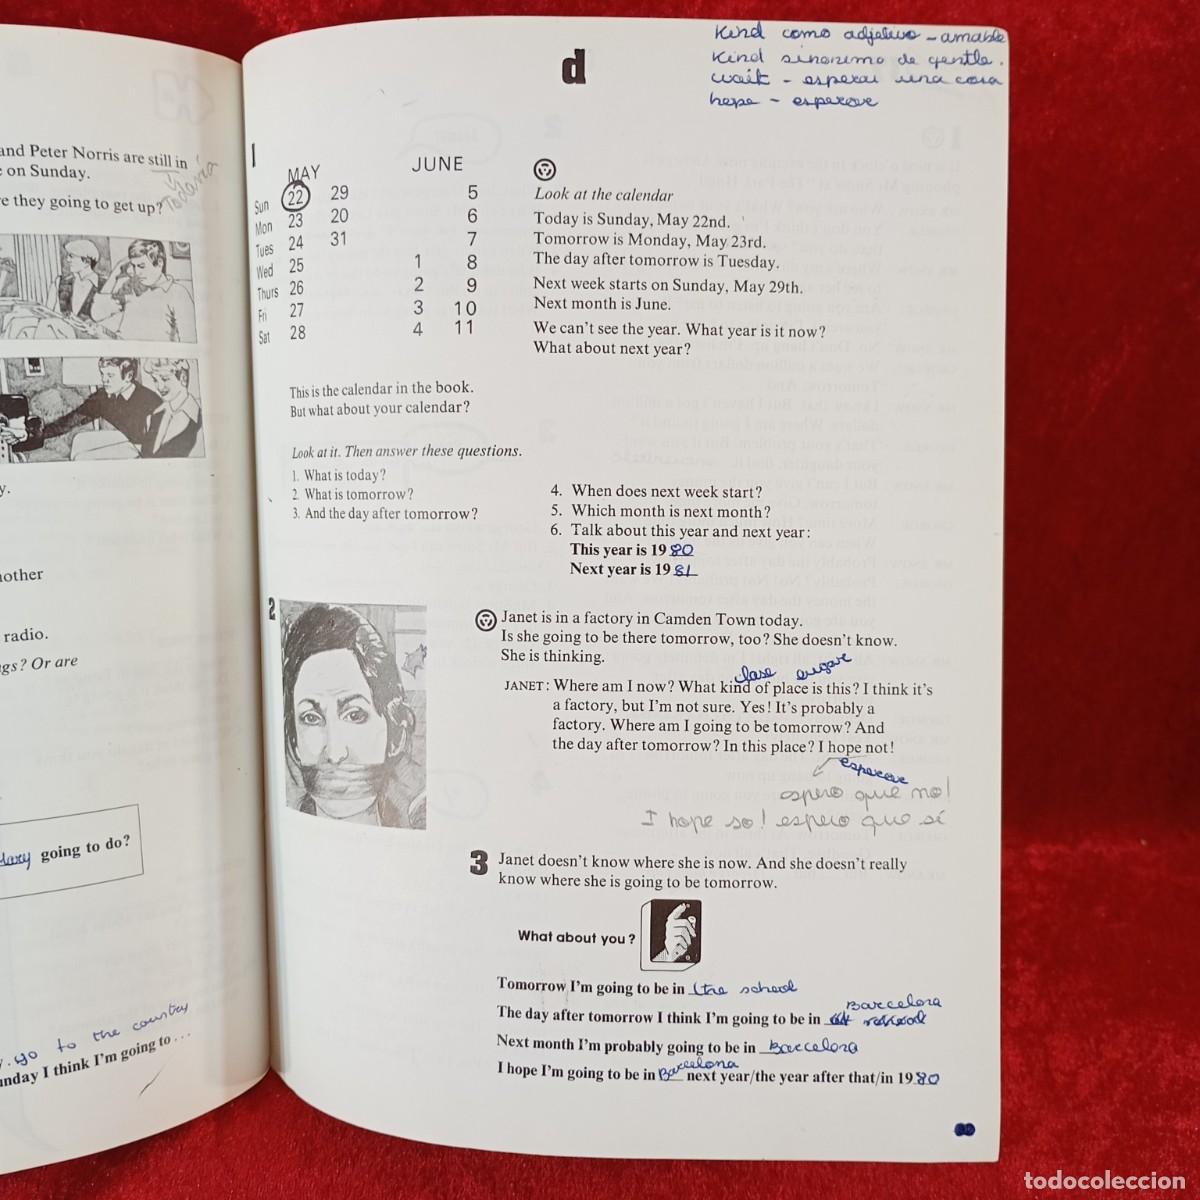 and Peter Norris are still in
e on Sunday.
Todavía
re they going to get up?
y.
nother
radio.
gs? Or are
Mary going to do?
go to the country
unday I think I'm going to...
Kind como adjetivo - amable
Kind sinonimo de gentle.
wait - esperar una cosa
hope - esperar
d
1
MAY JUNE
Sun 22 29 5
Mon 23 20 6
Tues 24 31 7
Wed 25 1 8
Thurs 26 2 9
Fri 27 3 10
Sat 28 4 11
Look at the calendar
Today is Sunday, May 22nd.
Tomorrow is Monday, May 23rd.
The day after tomorrow is Tuesday.
Next week starts on Sunday, May 29th.
Next month is June.
We can't see the year. What year is it now?
What about next year?
This is the calendar in the book.
But what about your calendar?
Look at it. Then answer these questions.
1. What is today?
2. What is tomorrow?
3. And the day after tomorrow?
4. When does next week start?
5. Which month is next month?
6. Talk about this year and next year:
This year is 1980
Next year is 1981
2
Janet is in a factory in Camden Town today.
Is she going to be there tomorrow, too? She doesn't know.
She is thinking.
clase
JANET: Where am I now? What kind of place is this? I think it's
a factory, but I'm not sure. Yes! It's probably a
factory. Where am I going to be tomorrow? And
the day after tomorrow? In this place? I hope not!
esperar
espero que no!
I hope so! espero que sí
3
Janet doesn't know where she is now. And she doesn't really
know where she is going to be tomorrow.
What about you?
Tomorrow I'm going to be in the school
Barcelona
The day after tomorrow I think I'm going to be in
Next month I'm probably going to be in Barcelona
I hope I'm going to be in Barcelona next year/the year after that/in 1980
todocoleccion